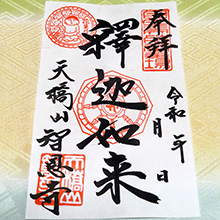 奉拝
令和 年 月 日
釋迦如来
天橋山智恩寺